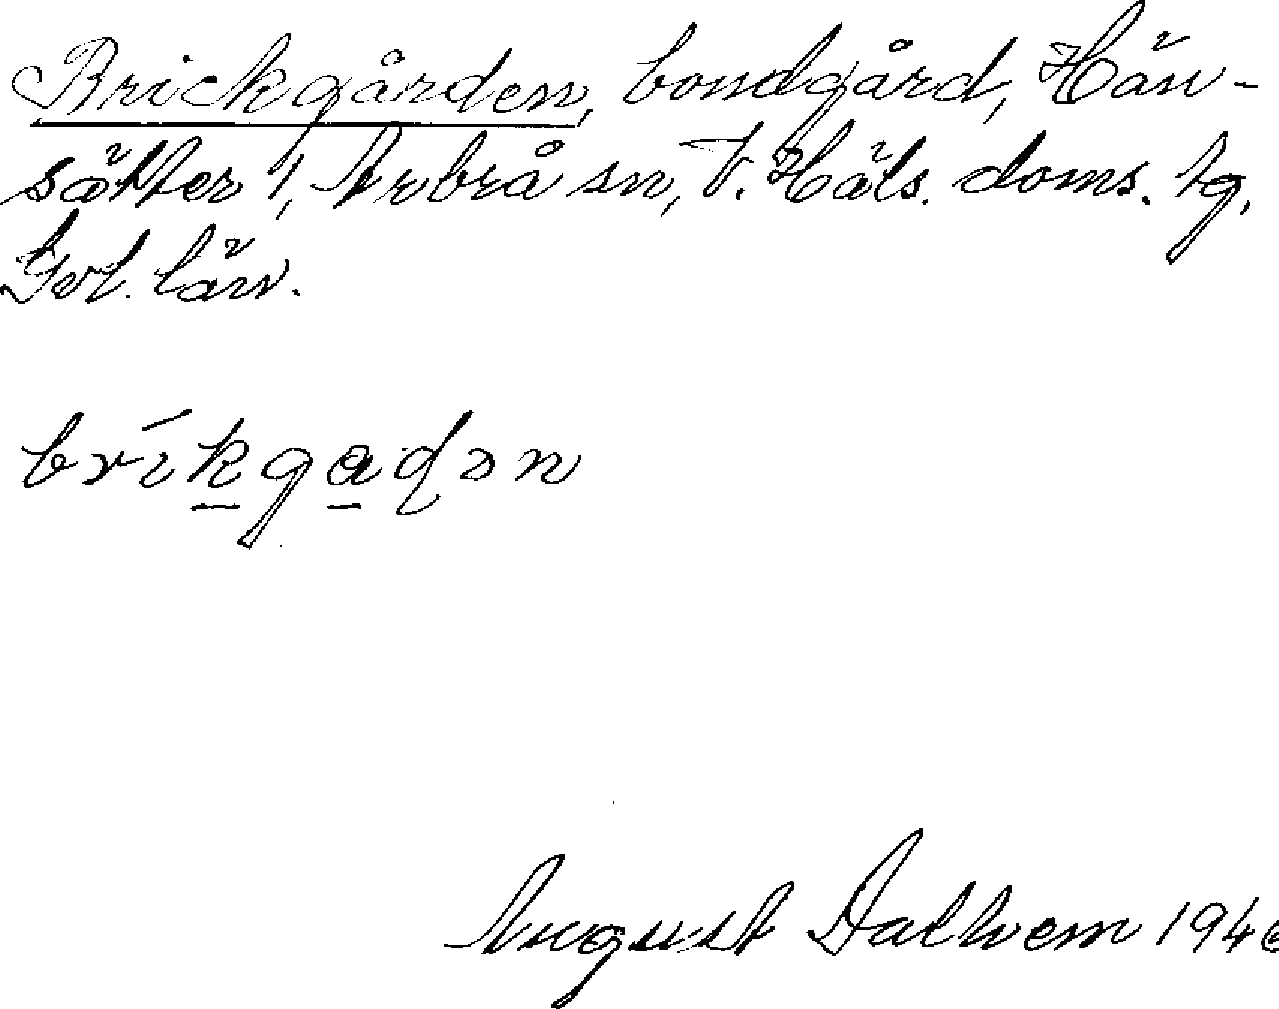 Brickgården, bondgård, Hän-
sätter 1, Arbrå sn, V. Häls. doms. tg,
Gvl. län.
bríkgadən
August Dalhem 1946